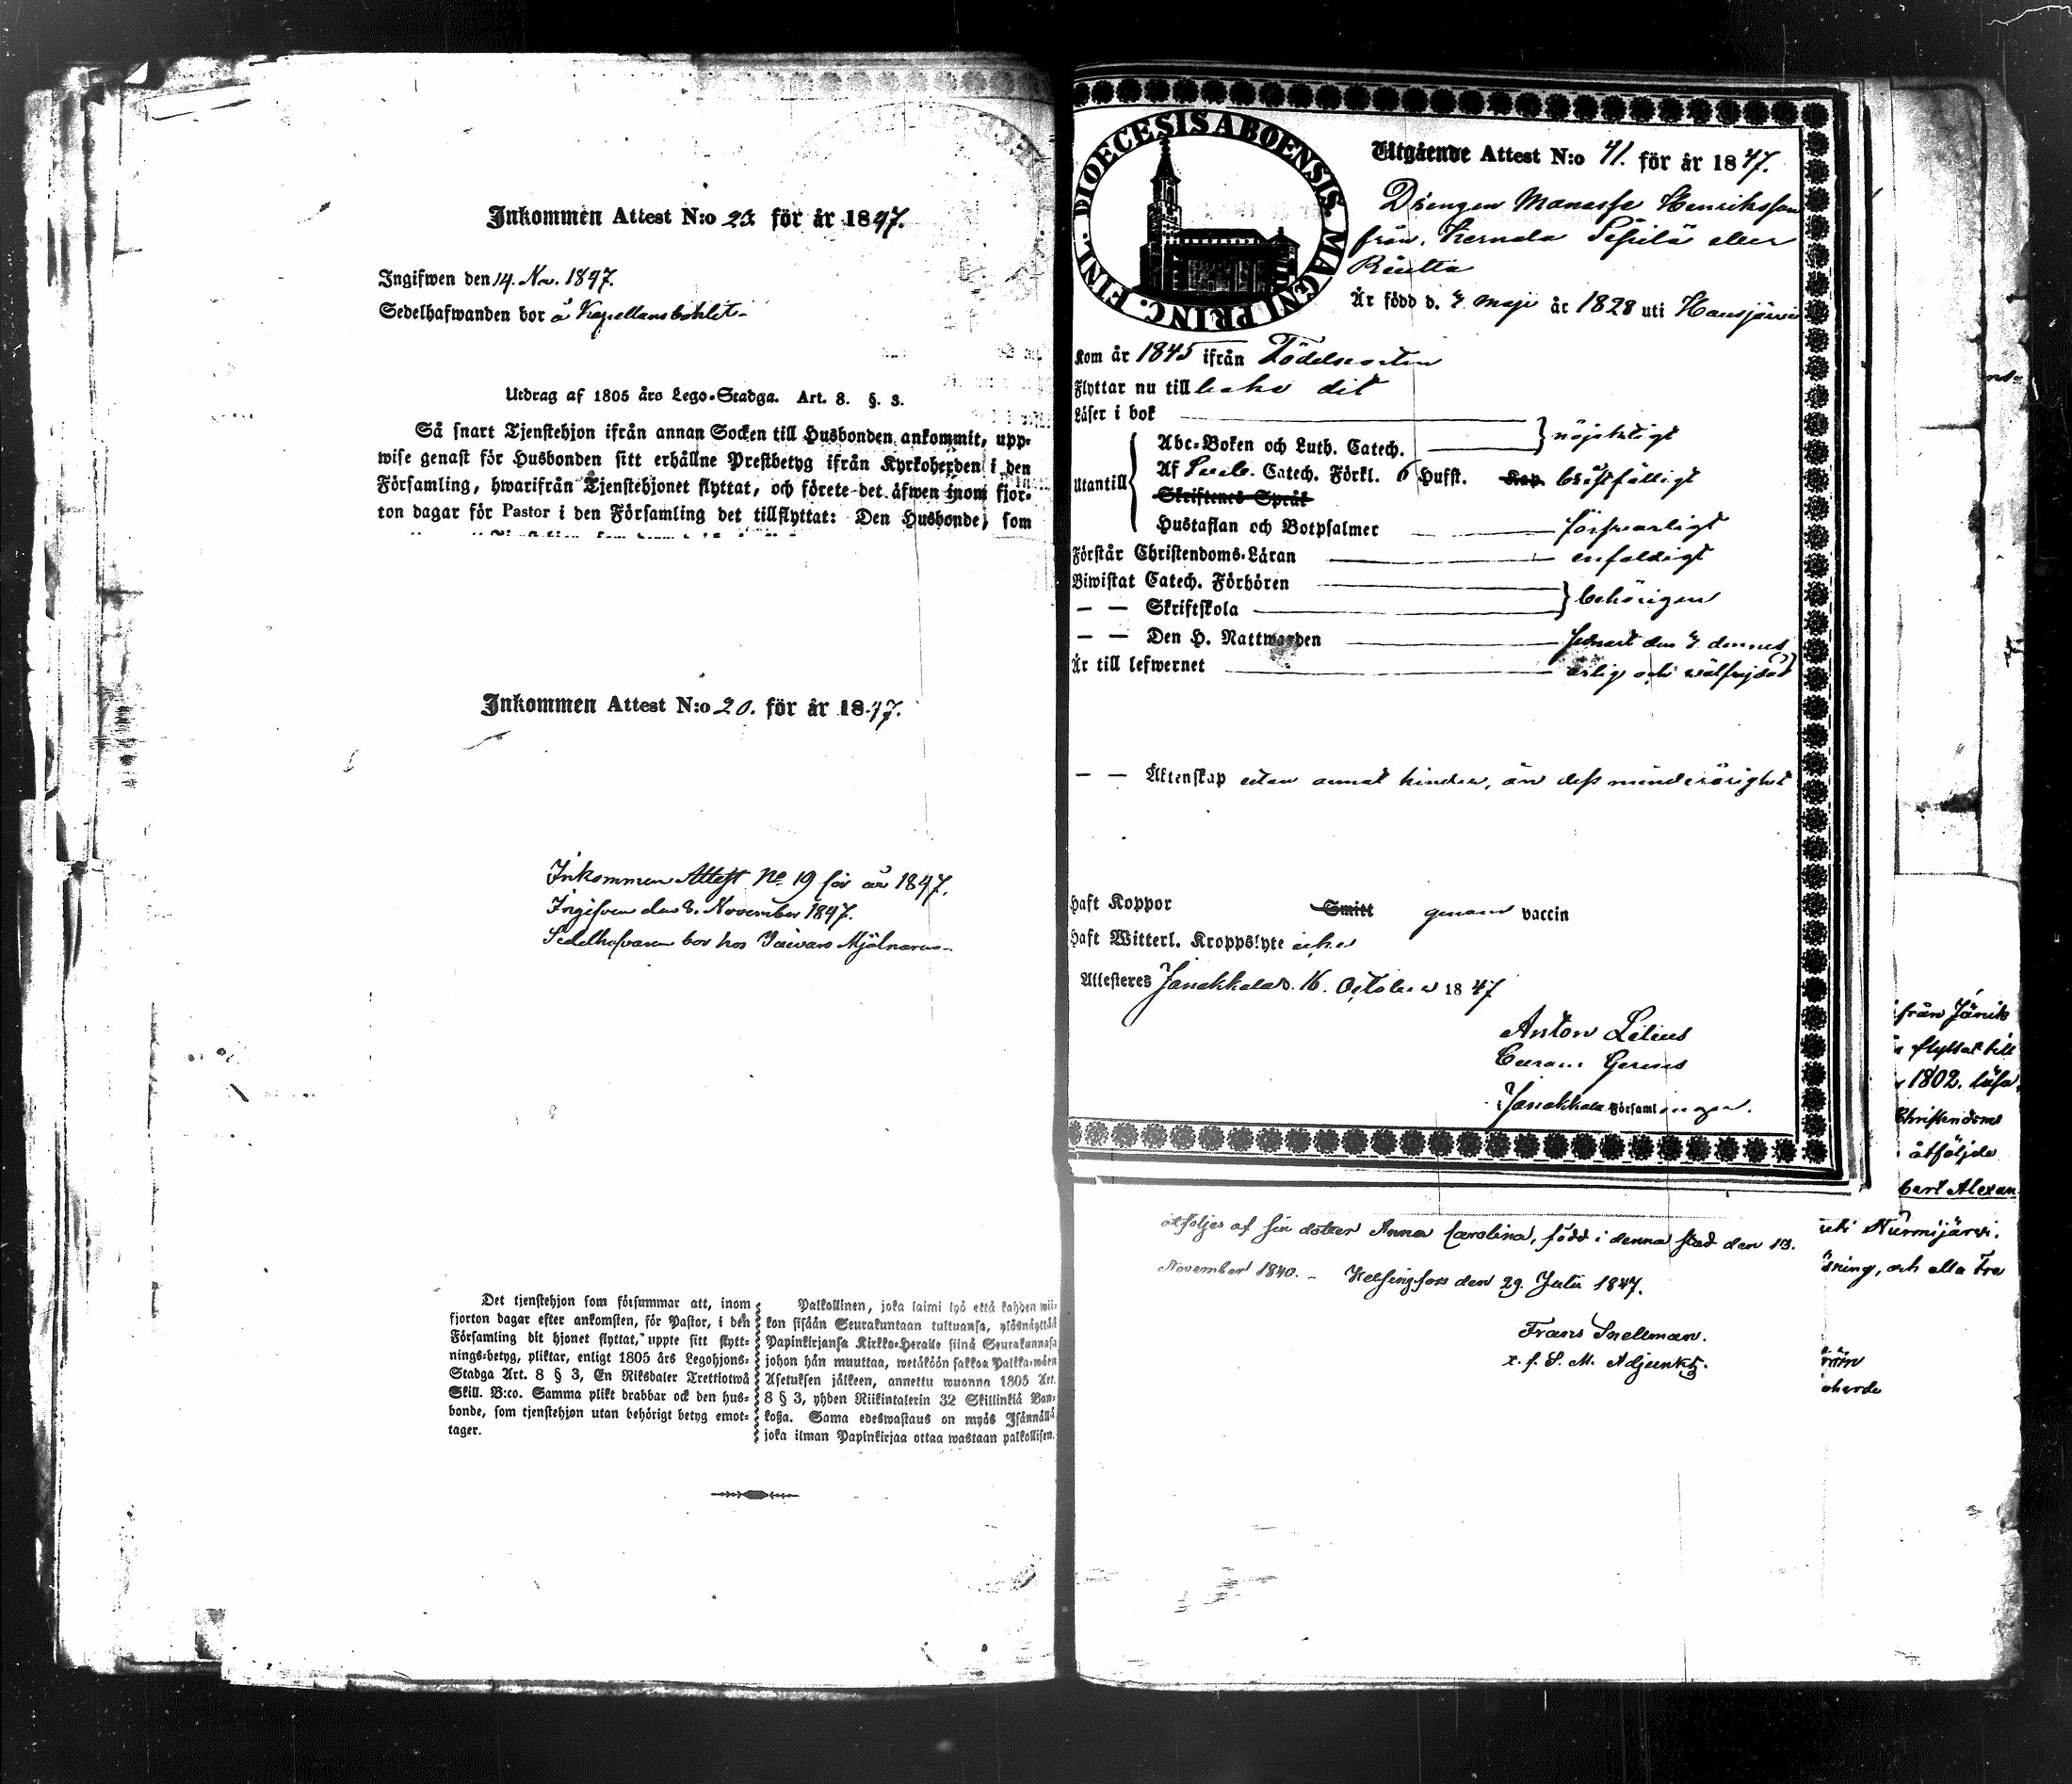 Inkommen Attest N:o 23. för år 1847.
Ingifwen den 14. Nov. 1847.
Sedelhafwanden bor å Kapellansbohlet.
Utdrag af 1805 års Lego-Stadga. Art. 8. §. 3.
Så snart Tjenstehjon ifrån annan Socken till Husbonden ankommit, upp-
wise genast för Husbonden sitt erhållne Prestbetyg ifrån Kyrkoherden i den
Församling, hwarifrån Tjenstehjonet flyttat, och förete det äfwen inom fjor-
ton dagar för Pastor i den Församling det tillflyttat: Den Husbonde, som
Inkommen Attest N:o 20. för år 1847.
Inkommen Attest No 19 för år 1847.
Ingifven den 8. November 1847.
Sedelhafvaren bor hos Mjölnaren
Det tjenstehjon som försummar att, inom
fjorton dagar efter ankomsten, för Pastor, i den
Församling dit hjonet flyttat, uppte sitt flytt-
nings-betyg, pliktar, enligt 1805 års Legohjons-
Stadga Art. 8 § 3, En Riksdaler Trettiotwå
Skill. B:co. Samma plikt drabbar ock den hus-
bonde, som tjenstehjon utan behörigt betyg emot-
tager.
Palkollinen, joka laimi lyö että kahden wii-
kon sisään Seurakuntaan tultuansa, ylösnäyttää
Papinkirjansa Kirkko-Herralle siinä Seurakunnasa
johon hän muuttaa, wetäköön sakkoa Palkka-wäen
Asetuksen jälkeen, annettu wuonna 1805 Art.
8 § 3, yhden Riikintalerin 32 Skillinkiä Ban-
koßa. Sama edeswastaus on myös Isännällä
joka ilman Papinkirjaa ottaa wastaan palkollisen.
DIOECESIS ABOENSIS. MAGNI PRINC. FINL.
Utgående Attest N:o 41. för år 1847.
Drengen Manasse Henriksson
från Kernala Seppilä eller
Är född d. 7 Maji år 1828 uti Hausjärvi
Kom år 1845 ifrån Födelseorten
Flyttar nu till baka dit
Läser i bok
Abc-Boken och Luth. Catech. nöjaktigt
Utantill Af Sveb. Catech. Förkl. 6 Hufst. Kap. bristfälligt
Skriftenes Språk
Hustaflan och Botpsalmer försvarligt
Förstår Christendoms-Läran enfaldigt
Biwistat Catech. Förhören
— — Skriftskola behörigen
— — Den H. Nattwarden senast den 7 dennes
Är till lefwernet ärlig och välfrejdad
— — Äktenskap utan annat hinder, än dess minderårighet
Haft Koppor Smitt genom vaccin
Haft Witterl. Kroppslyte icke
Attesteres Janakkala d. 16. October 1847
Anton Lilius
Curam Gerens
i Janakkala Församlingen.
åtföljes af sin dotter Anna Carolina, född i denna stad den 13.
November 1840. – Helsingfors den 29. Julii 1847.
Frans Snellman.
x. f. S. M. Adjunkt.
från
flyttat till
1802. läsa
Christendoms
åtföljde
bert Alexan
uti Nurmijärvi.
sning, och alla Fre